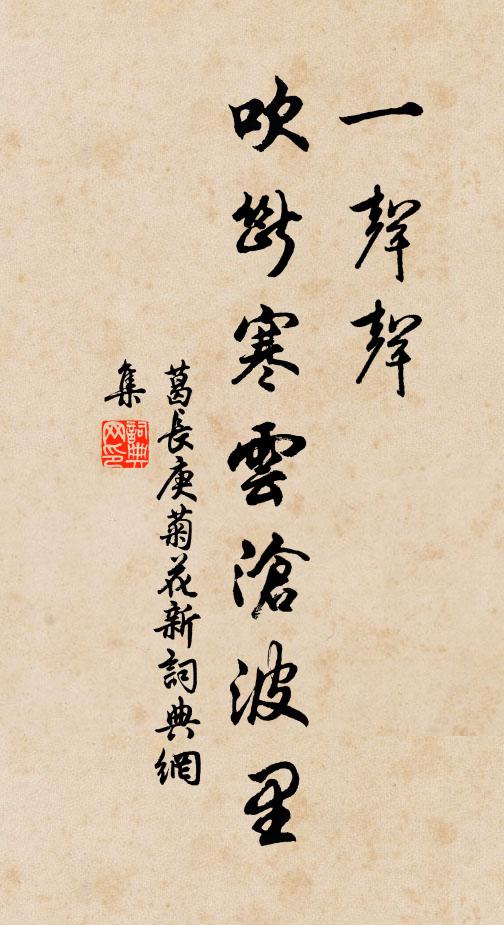 一聲聲
吹斷寒雲滄波里
葛長庚菊花新詞典網
集
詞典网印